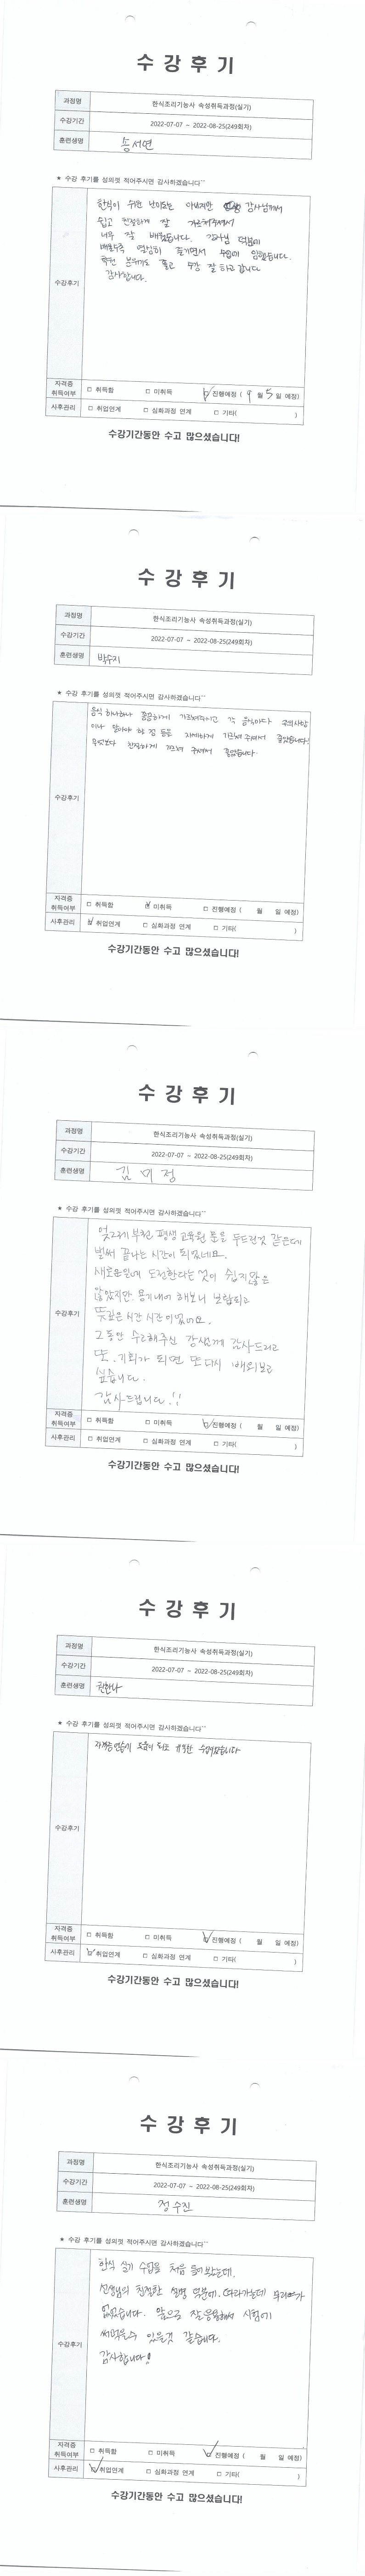 수 강 후 기
과정명 한식조리기능사 속성취득과정(실기)
수강기간 2022-07-07 ~ 2022-08-25(249회차)
훈련생명 송서연
★ 수강 후기를 성의껏 적어주시면 감사하겠습니다^^
수강후기
한식이 쉬운 난이도는 아니지만 강사님께서
쉽고 친절하게 잘 가르쳐주셔서
너무 잘 배웠습니다. 강사님 덕분에
매번 열심히 즐기면서 수업에 임했습니다.
학원 분위기도 좋고 수강 잘 하고 갑니다
감사합니다.
자격증 취득여부 □ 취득함 □ 미취득 ☑ 진행예정 ( 9 월 5 일 예정)
사후관리 □ 취업연계 □ 심화과정 연계 □ 기타( )
수강기간동안 수고 많으셨습니다!
수 강 후 기
과정명 한식조리기능사 속성취득과정(실기)
수강기간 2022-07-07 ~ 2022-08-25(249회차)
훈련생명 박수지
★ 수강 후기를 성의껏 적어주시면 감사하겠습니다^^
수강후기
음식 하나하나 꼼꼼하게 가르쳐주시고 각 음식마다 주의사항
이나 알아야 할 점 등을 자세하게 가르쳐 주셔서 좋았습니다!
무엇보다 친절하게 가르쳐 주셔서 좋았습니다.
자격증 취득여부 □ 취득함 ☑ 미취득 □ 진행예정 ( 월 일 예정)
사후관리 ☑ 취업연계 □ 심화과정 연계 □ 기타( )
수강기간동안 수고 많으셨습니다!
수 강 후 기
과정명 한식조리기능사 속성취득과정(실기)
수강기간 2022-07-07 ~ 2022-08-25(249회차)
훈련생명 김 미 정
★ 수강 후기를 성의껏 적어주시면 감사하겠습니다^^
수강후기
엊그제 부천 평생 교육원 문을 두드린것 같은데
벌써 끝나는 시간이 되었네요.
새로운일에 도전한다는 것이 쉽지않은
않았지만 용기내어 해보니 보람되고
뜻깊은 시간 시간이었네요.
그동안 수고해주신 강사님께 감사드리고
또, 기회가 되면 또 다시 배워보고
싶습니다.
감사드립니다!!
자격증 취득여부 □ 취득함 □ 미취득 ☑ 진행예정 ( 월 일 예정)
사후관리 □ 취업연계 □ 심화과정 연계 □ 기타( )
수강기간동안 수고 많으셨습니다!
수 강 후 기
과정명 한식조리기능사 속성취득과정(실기)
수강기간 2022-07-07 ~ 2022-08-25(249회차)
훈련생명
★ 수강 후기를 성의껏 적어주시면 감사하겠습니다^^
수강후기
자격증 연습에 도움이 되고 유익한 수업이었습니다
자격증 취득여부 □ 취득함 □ 미취득 ☑ 진행예정 ( 월 일 예정)
사후관리 ☑ 취업연계 □ 심화과정 연계 □ 기타( )
수강기간동안 수고 많으셨습니다!
수 강 후 기
과정명 한식조리기능사 속성취득과정(실기)
수강기간 2022-07-07 ~ 2022-08-25(249회차)
훈련생명 정수진
★ 수강 후기를 성의껏 적어주시면 감사하겠습니다^^
수강후기
한식 실기 수업을 처음 들어봤는데,
선생님의 친절한 설명 덕분에, 따라가는데 무리가
없었습니다. 앞으로 잘 응용해서 시험에
써먹을수 있을것 같습니다.
감사합니다!
자격증 취득여부 □ 취득함 □ 미취득 ☑ 진행예정 ( 월 일 예정)
사후관리 ☑ 취업연계 □ 심화과정 연계 □ 기타( )
수강기간동안 수고 많으셨습니다!